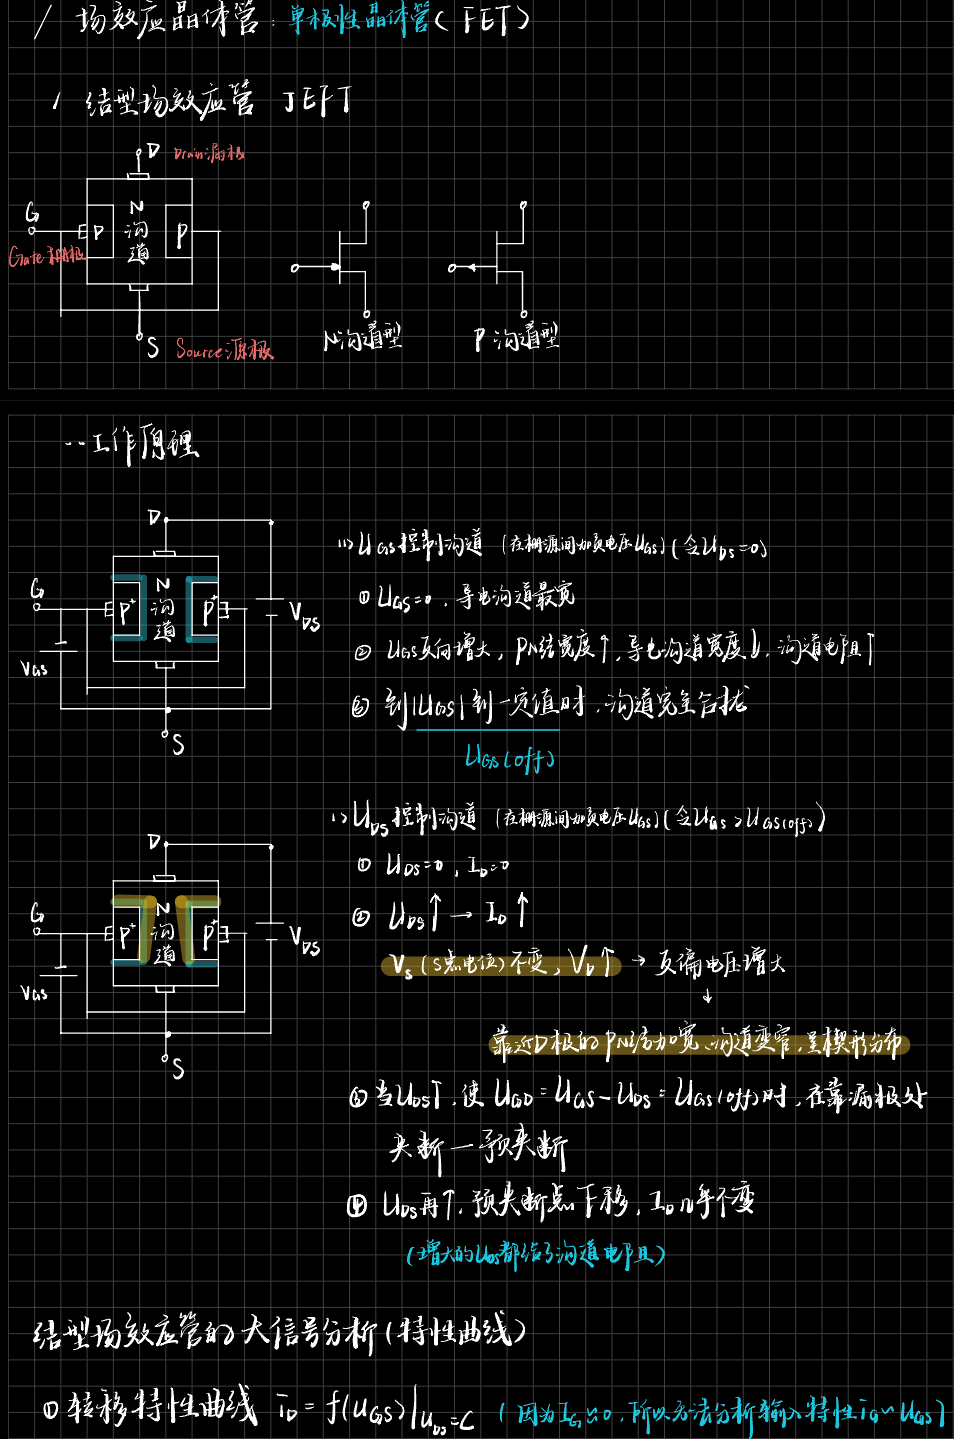 / 场效应晶体管:单极性晶体管(FET)
1 结型场效应管 JEFT
D Drain漏极
G
Gate栅极
P
N沟道
P
S Source源极
N沟道型
P沟道型
··工作原理
D
G
P+
N沟道
P+
VGS
VDS
S
(1) UGS控制沟道 (在栅源间加负电压UGS)(令UDS=0)
① UGS=0,导电沟道最宽
② UGS反向增大,PN结宽度↑,导电沟道宽度↓,沟道电阻↑
③ 到|UGS|到一定值时,沟道完全合拢
UGS(off)
D
G
P+
N沟道
P+
VGS
VDS
S
(1) UDS控制沟道 (在栅源间加负电压UGS)(令UGS>UGS(off))
① UDS=0,ID=0
② UDS↑→ID↑
VS(S点电位)不变,VD↑ → 反偏电压增大
↓
靠近D极的PN结加宽,沟道变窄,呈楔形分布
③ 当UDS↑,使UGD=UGS-UDS=UGS(off)时,在靠漏极处
夹断—预夹断
④ UDS再↑,预夹断点下移,ID几乎不变
(增大的UDS都给了沟道电阻)
结型场效应管的大信号分析(特性曲线)
① 转移特性曲线 iD=f(UGS)|UDS=C (因为IG≈0,所以无法分析输入特性iG~UGS)